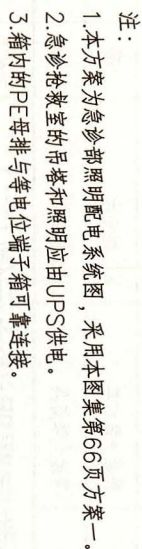 注：
1.本方案为急诊部照明配电系统图，采用本图集第66页方案一。
2.急诊抢救室的吊塔和照明应由UPS供电。
3.箱内的PE母排与等电位端子箱可靠连接。